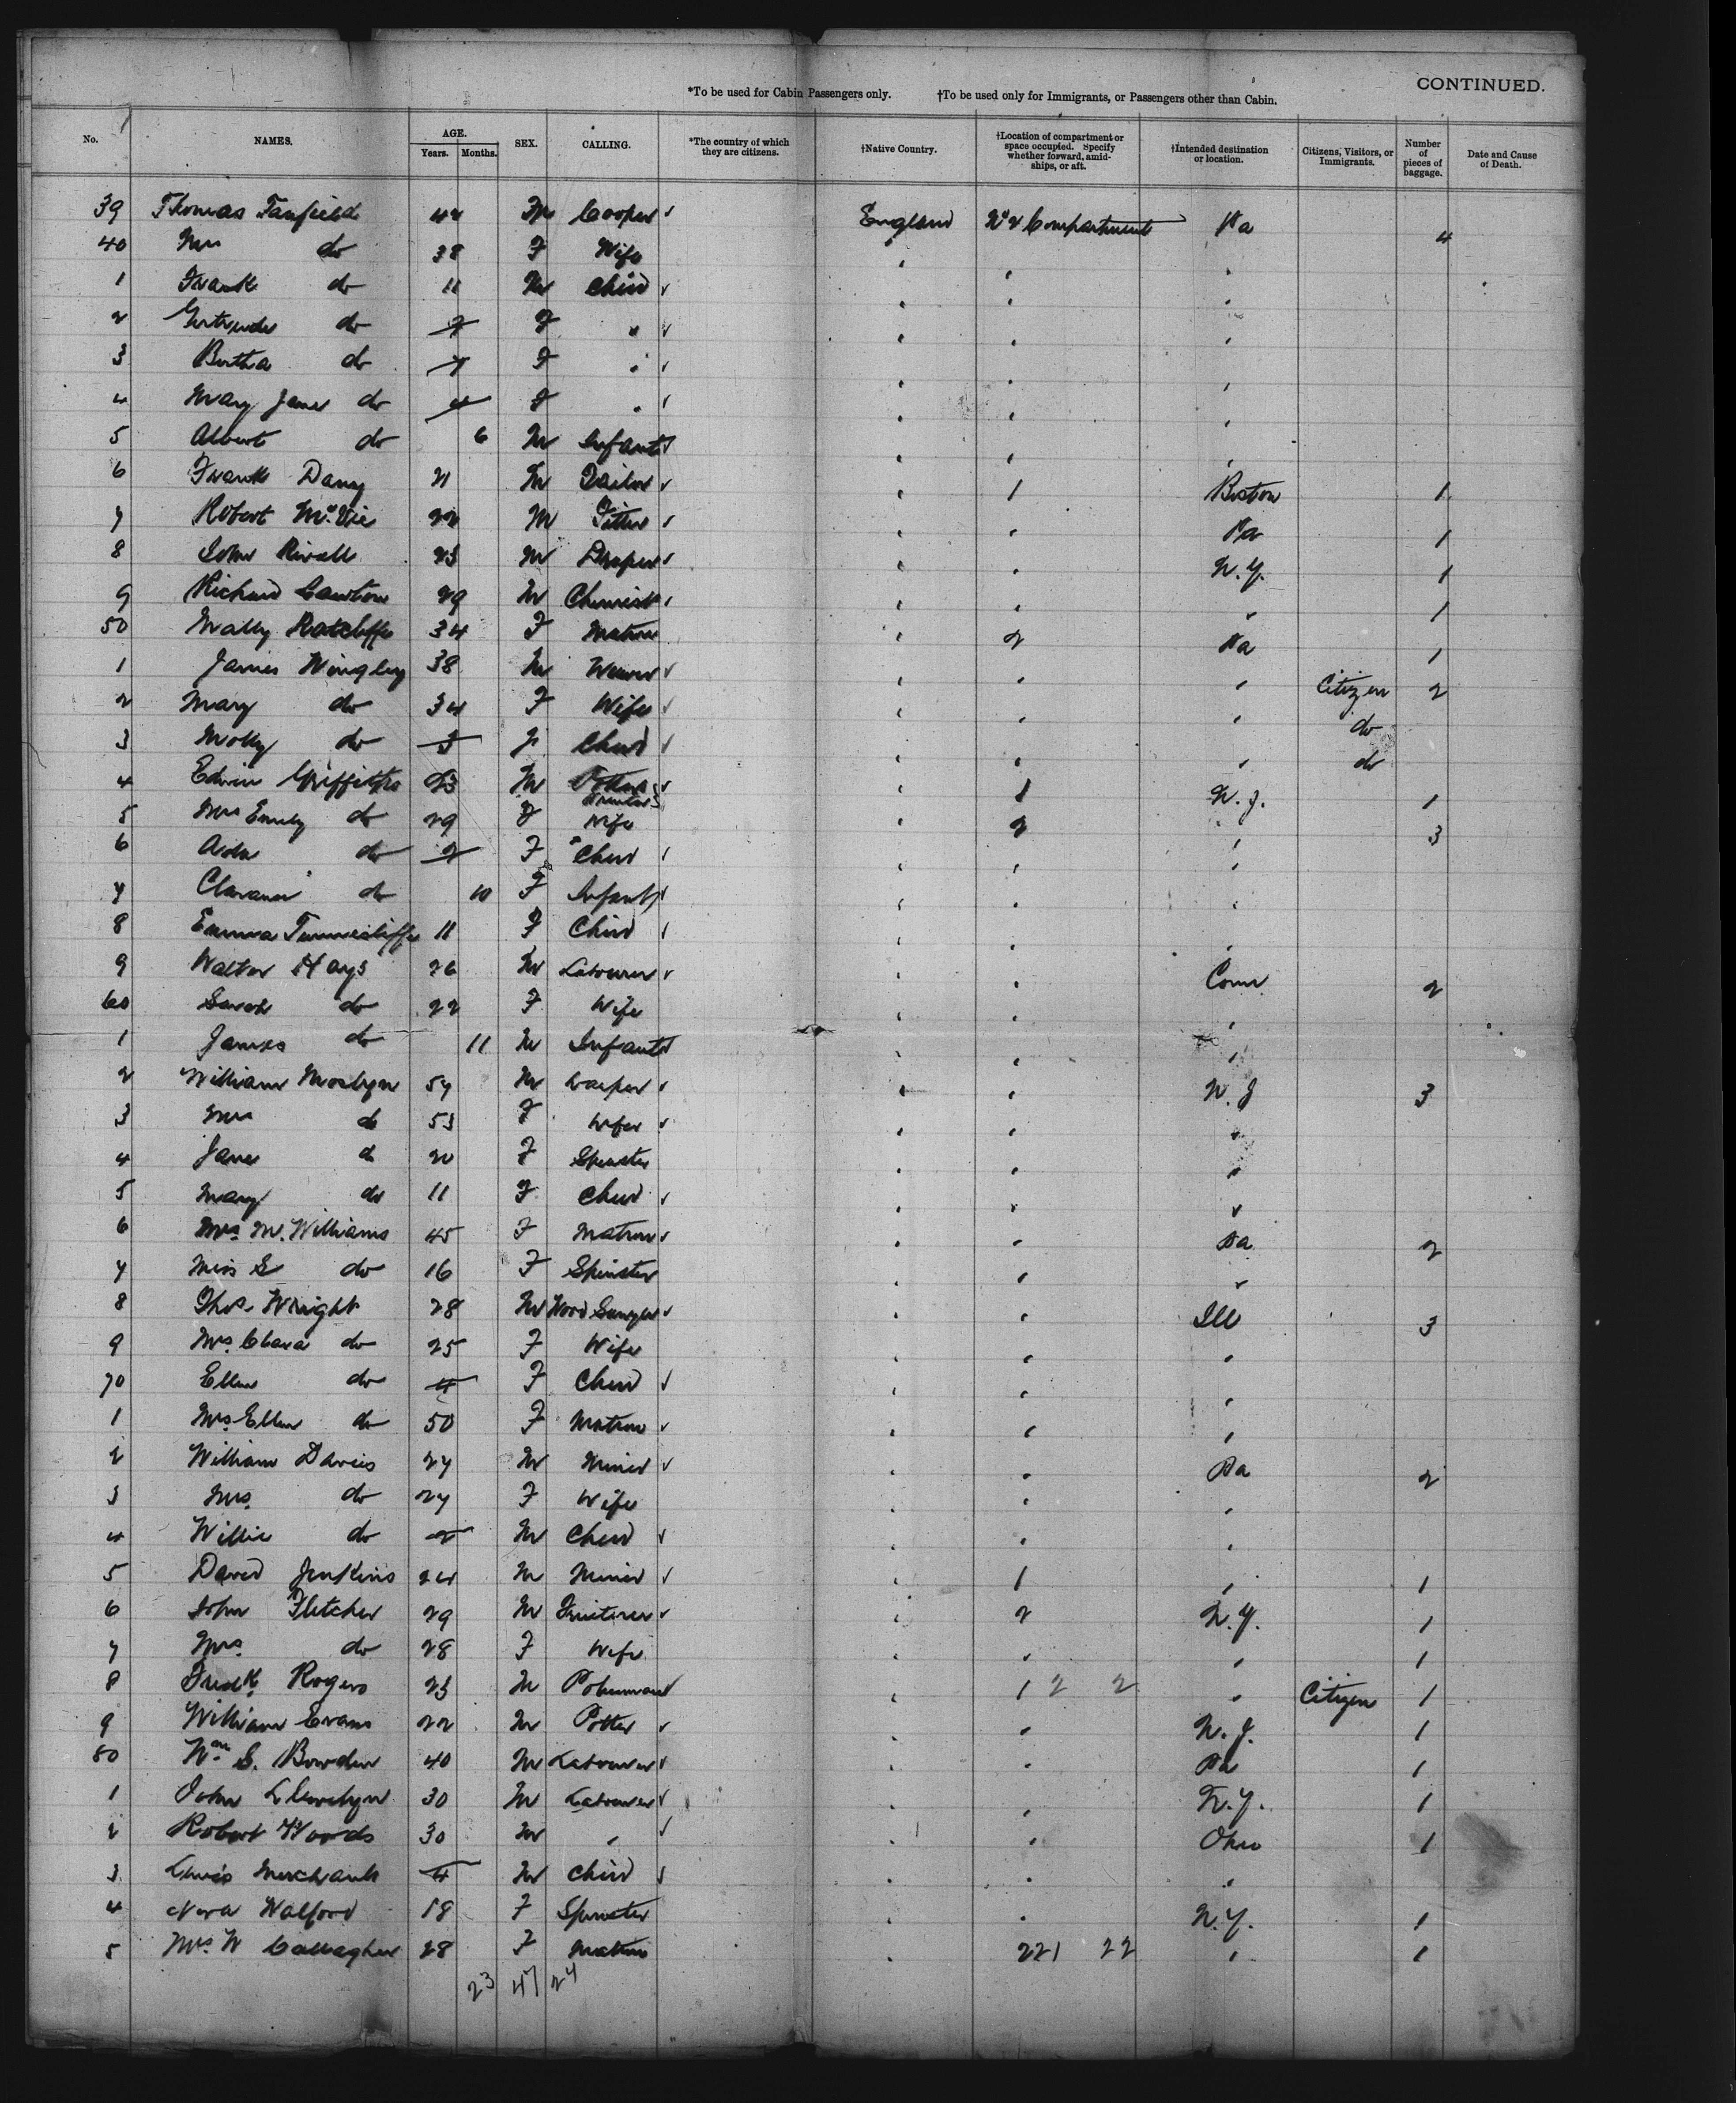 CONTINUED.
*To be used for Cabin Passengers only. †To be used only for Immigrants, or Passengers other than Cabin.
No. NAMES. AGE. Years. Months. SEX. CALLING. *The country of which they are citizens. †Native Country. †Location of compartment or space occupied. Specify whether forward, amidships, or aft. †Intended destination or location. Citizens, Visitors, or Immigrants. Number of pieces of baggage. Date and Cause of Death.
39 Thomas Tanfield 44 M Cooper England No 2 Compartment Pa 4
40 Mrs do 38 F Wife
1 Frank do 11 M Child
2 Gertrude do F "
3 Bertha do 7 F "
4 Mary Jane do 4 F "
5 Albert do 6 M Infant
6 Frank Dany 21 M Tailor 1 Boston 1
7 Robert McVie 22 M Fitter Pa 1
8 John 23 M Draper N.Y. 1
9 Richard Cawton 29 M Chemist " 1
50 Mally Ratcliffe 34 F Matron 2 Pa 1
1 James Wingley 38 M Weaver " Citizen 2
2 Mary do 34 F Wife " do
3 Molly do 3 F Child " do
4 Edwin Griffiths 23 M 1 N.J. 1
5 Mrs Emily do 29 F Wife 2 " 3
6 Ada do 2 F Child
7 do 10 F Infant
8 Emma Tunnicliffe 11 F Child
9 Walter Hays 26 M Labourer Conn 2
60 Sarah do 22 F Wife
1 James do 11 M Infant
2 William Mostyn 57 M N.J 3
3 Mrs do 53 F Wife
4 Jane do 20 F Spinster
5 Mary do 11 F Child
6 Mrs M. Williams 45 F Matron Pa 2
7 Miss E do 16 F Spinster
8 Thos. Wright 28 M Wood Sawyer Ill 3
9 Mrs. Clara do 25 F Wife
70 Ellen do 4 F Child
1 Mrs. Ellen do 50 F Matron
2 William Davies 27 M Miner Pa 2
3 Mrs. do 27 F Wife
4 Willie do 2 M Child
5 David Jenkins 24 M Miner 1 " 1
6 John Fletcher 29 M Fruiterer 2 N.Y. 1
7 Mrs. do 28 F Wife " 1
8 Fredk. Rogers 23 M Policeman 1 2 2 " Citizen 1
9 William Evans 22 M Potter N.J. 1
80 Wm. S. Bowden 40 M Labourer Pa 1
1 John Llewelyn 30 M Labourer N.Y. 1
2 Robert Woods 30 M " Ohio 1
3 Lewis Merchant 4 M Child
4 Nora Walford 18 F Spinster N.Y. 1
5 Mrs. W Callaghan 28 F Matron 221 22 " 1
23 47 24